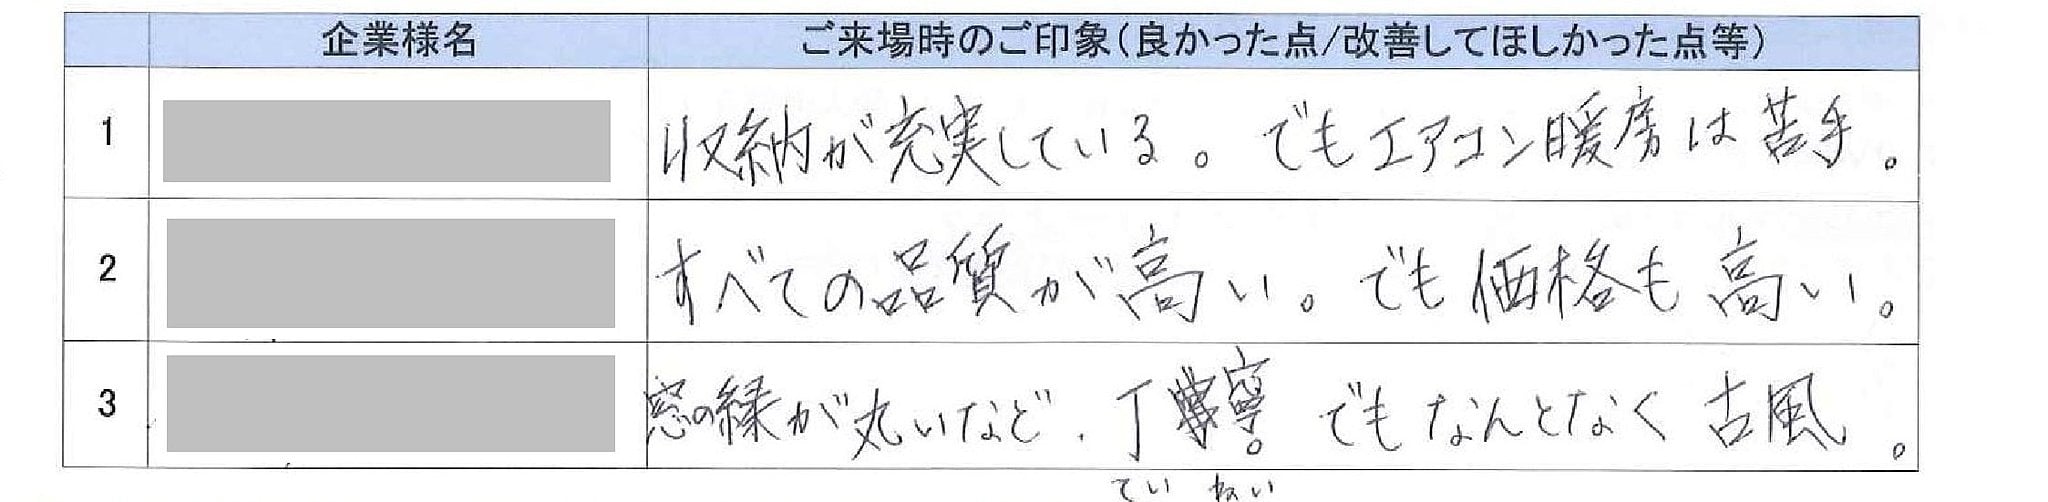 企業様名 ご来場時のご印象(良かった点/改善してほしかった点等)
1 収納が充実している。でもエアコン暖房は苦手。
2 すべての品質が高い。でも価格も高い。
3 窓の縁が丸いなど、丁寧。でもなんとなく古風。
ていねい